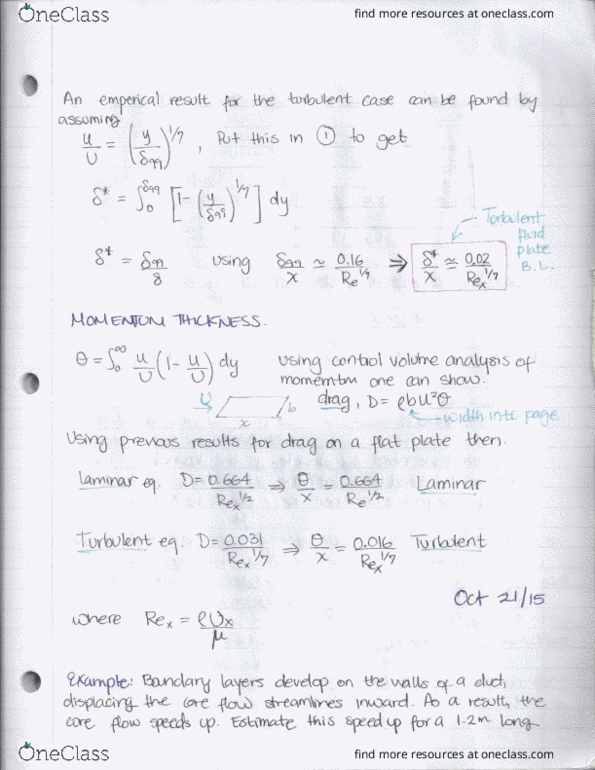 OneClass
find more resources at oneclass.com
An emperical result for the turbulent case can be found by
assuming
u/U = (y/δ99)^1/7 , Put this in ① to get
δ* = ∫0^δ99 [1-(y/δ99)^1/7] dy
Turbulent
fluid
plate
B.L.
δ* = δ99/8 using δ99/x ≃ 0.16/Re^1/7 ⇒ δ*/x ≃ 0.02/Rex^1/7
MOMENTUM THICKNESS.
θ = ∫0^∞ u/U (1- u/U) dy using control volume analysis of
momemtm one can show.
U b drag, D = ρbU²θ
x ← width into page
Using previous results for drag on a flat plate then.
Laminar eq. D = 0.664/Rex^1/2 ⇒ θ/x = 0.664/Re^1/2 Laminar
Turbulent eq. D = 0.031/Rex^1/7 ⇒ θ/x = 0.016/Rex^1/7 Turbulent
Oct 21/15
where Rex = ρUx/μ
Example: Boundary layers develop on the walls of a duct,
displacing the core flow streamlines inward. As a result, the
core flow speeds up. Estimate this speed up for a 1.2m long
OneClass
find more resources at oneclass.com